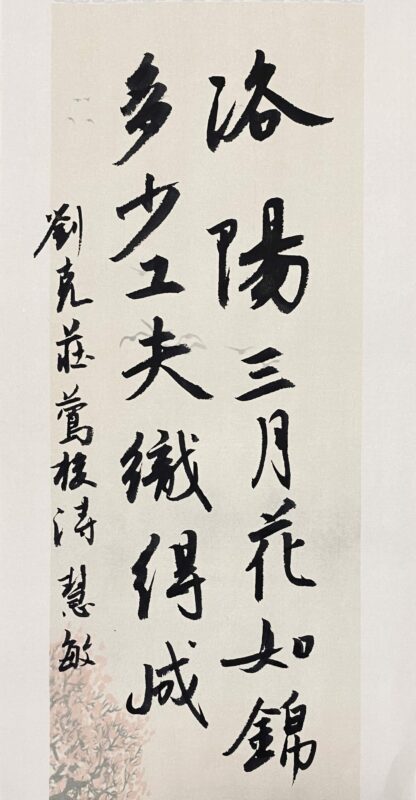 洛陽三月花如錦
多少工夫織得成
劉克莊鶯梭詩慧敏